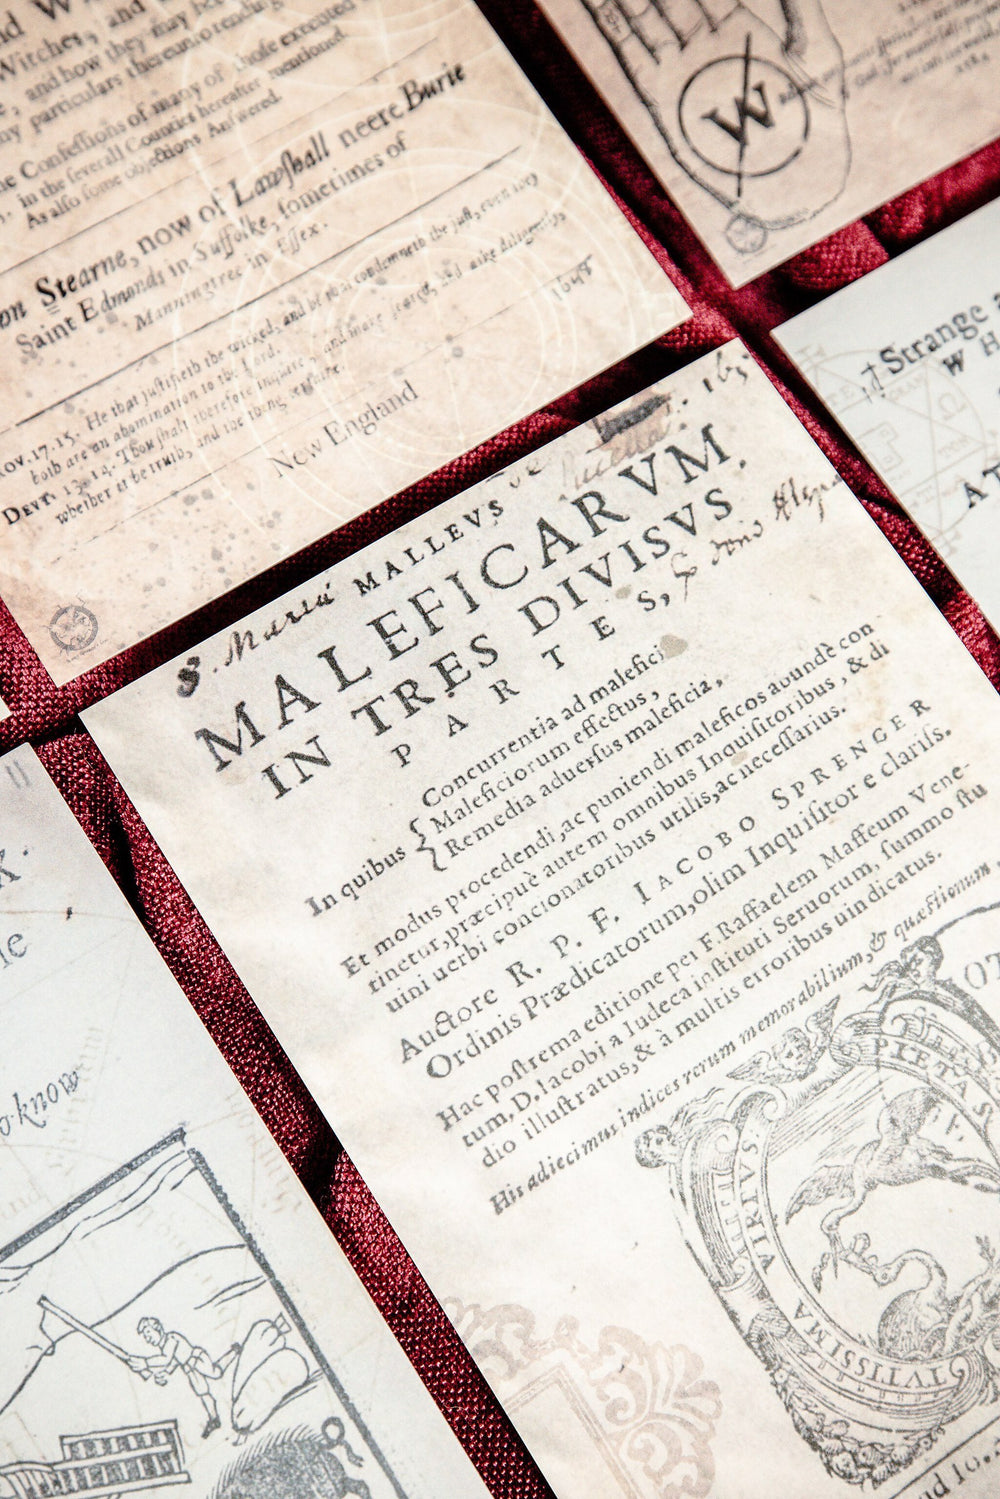 Witches, and how they may be
particulars thereunto tending
Confessions of many of those executed
in the severall Counties hereafter mentioned.
As also some objections Answered.
Stearne, now of Lawſhall neere Burie
Saint Edmonds in Suffolke, ſometimes of
Manningtree in Eſſex.
17.15. He that juſtifieth the wicked, and he that condemneth the juſt, even they
both are an abomination to the Lord.
Devt. 13.14. Thou ſhalt therefore inquire, and make ſearch, and aske diligently
whether it be truth, and the thing certaine.
1648
New England
W
Strange
W H
AT
S. Maria MALLEVS
MALEFICARVM
IN TRES DIVISVS
PARTES,
In quibus
Concurrentia ad malefici
Maleficiorum effectus,
Remedia aduerſus maleficia,
Et modus procedendi, ac puniendi maleficos abundè con
tinetur, præcipuè autem omnibus Inquiſitoribus, & di
uini uerbi concionatoribus utilis, ac neceſſarius.
Auctore R. P. F. IACOBO SPRENGER
Ordinis Prædicatorum, olim Inquiſitor e clariſs.
Hac poſtrema editione per F. Raffaelem Maffeum Vene-
tum, D. Iacobi a Iudeca inſtituti Seruorum, ſummo ſtu
dio illuſtratus, & à multis erroribus uindicatus.
His adiecimus indices rerum memorabilium, & quæſtionum
PIETA
VIRIVS
TVTISSIMA
o know